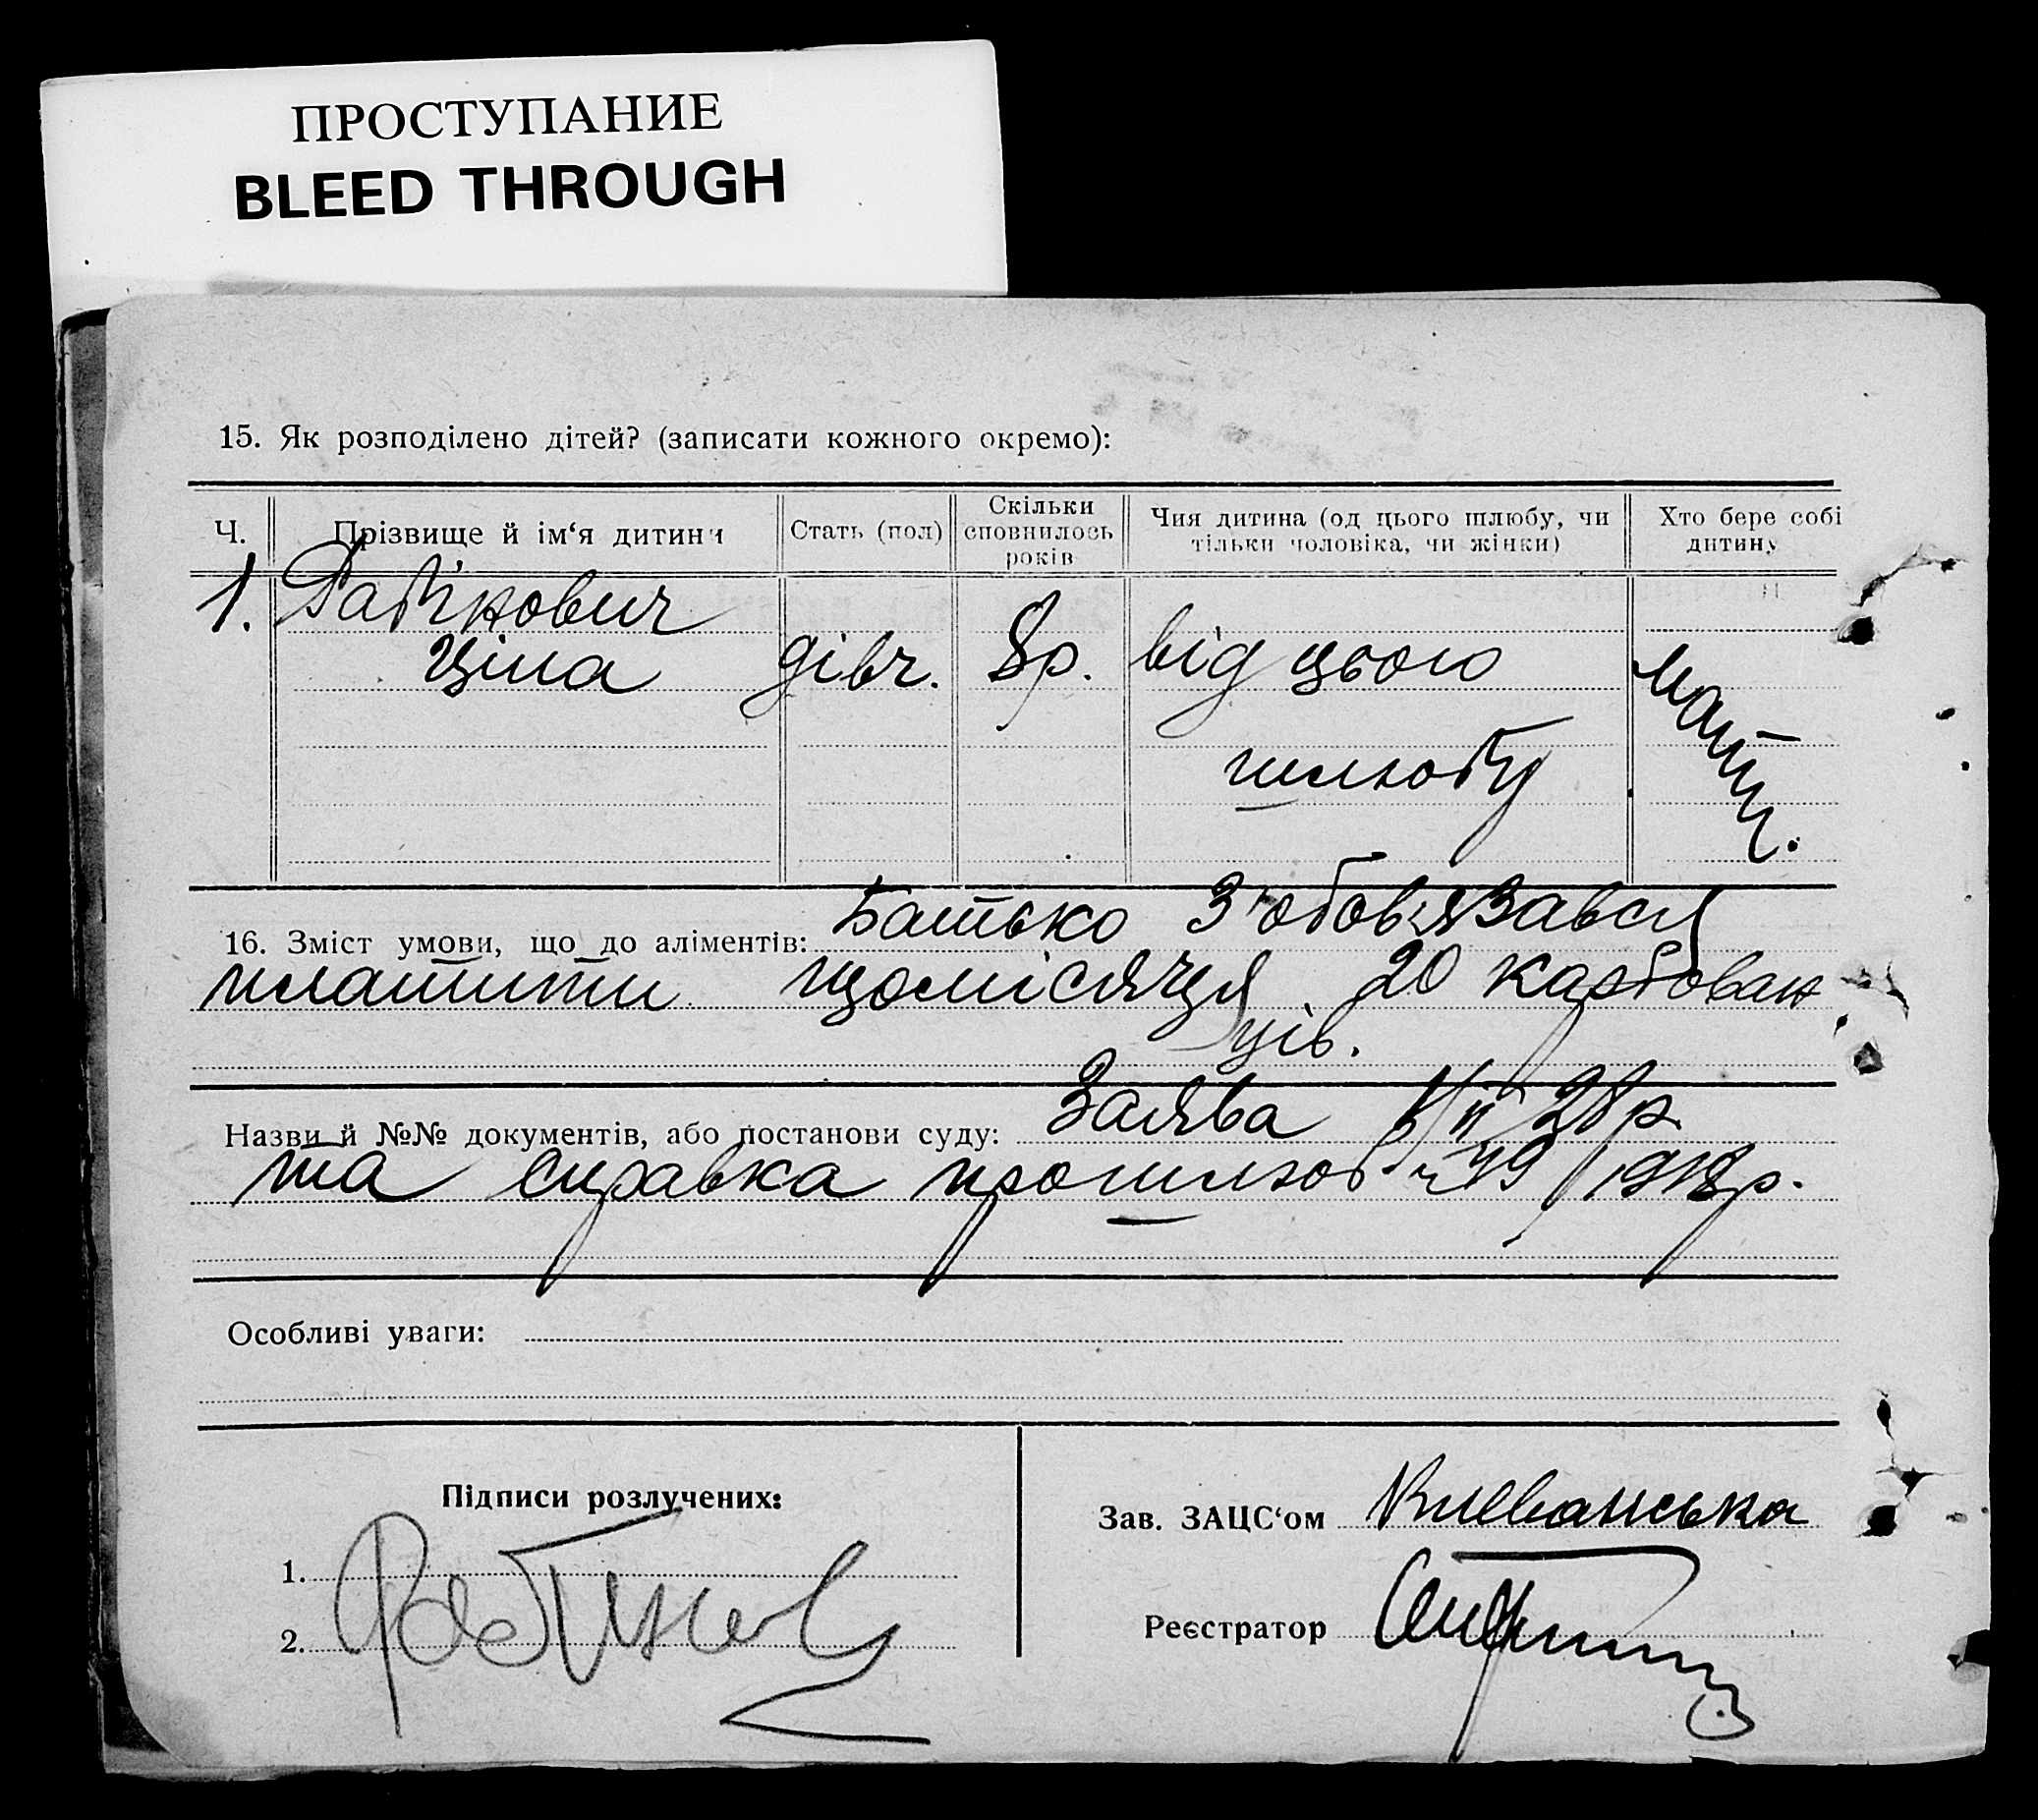 ПРОСТУПАНИЕ
BLEED THROUGH
15. Як розподілено дітей? (записати кожного окремо):
Ч. Прізвище й ім‘я дитини Стать (пол) Скільки сповнилось років Чия дитина (од цього шлюбу, чи тільки чоловіка, чи жінки) Хто бере собі дитину
1. Рабінович
Ціла дівч. 8р. від цього мати.
шлюбу
Батько з'обов'язався
16. Зміст умови, що до аліментів:
платити щомісячця 20 карбован
ців.
Назви й №№ документів, або постанови суду: Заява 28р.
та справка про шлюб ч 49 1918р.
Особливі уваги:
Підписи розлучених:
Зав. ЗАЦС‘ом
1.
2.
Реєстратор